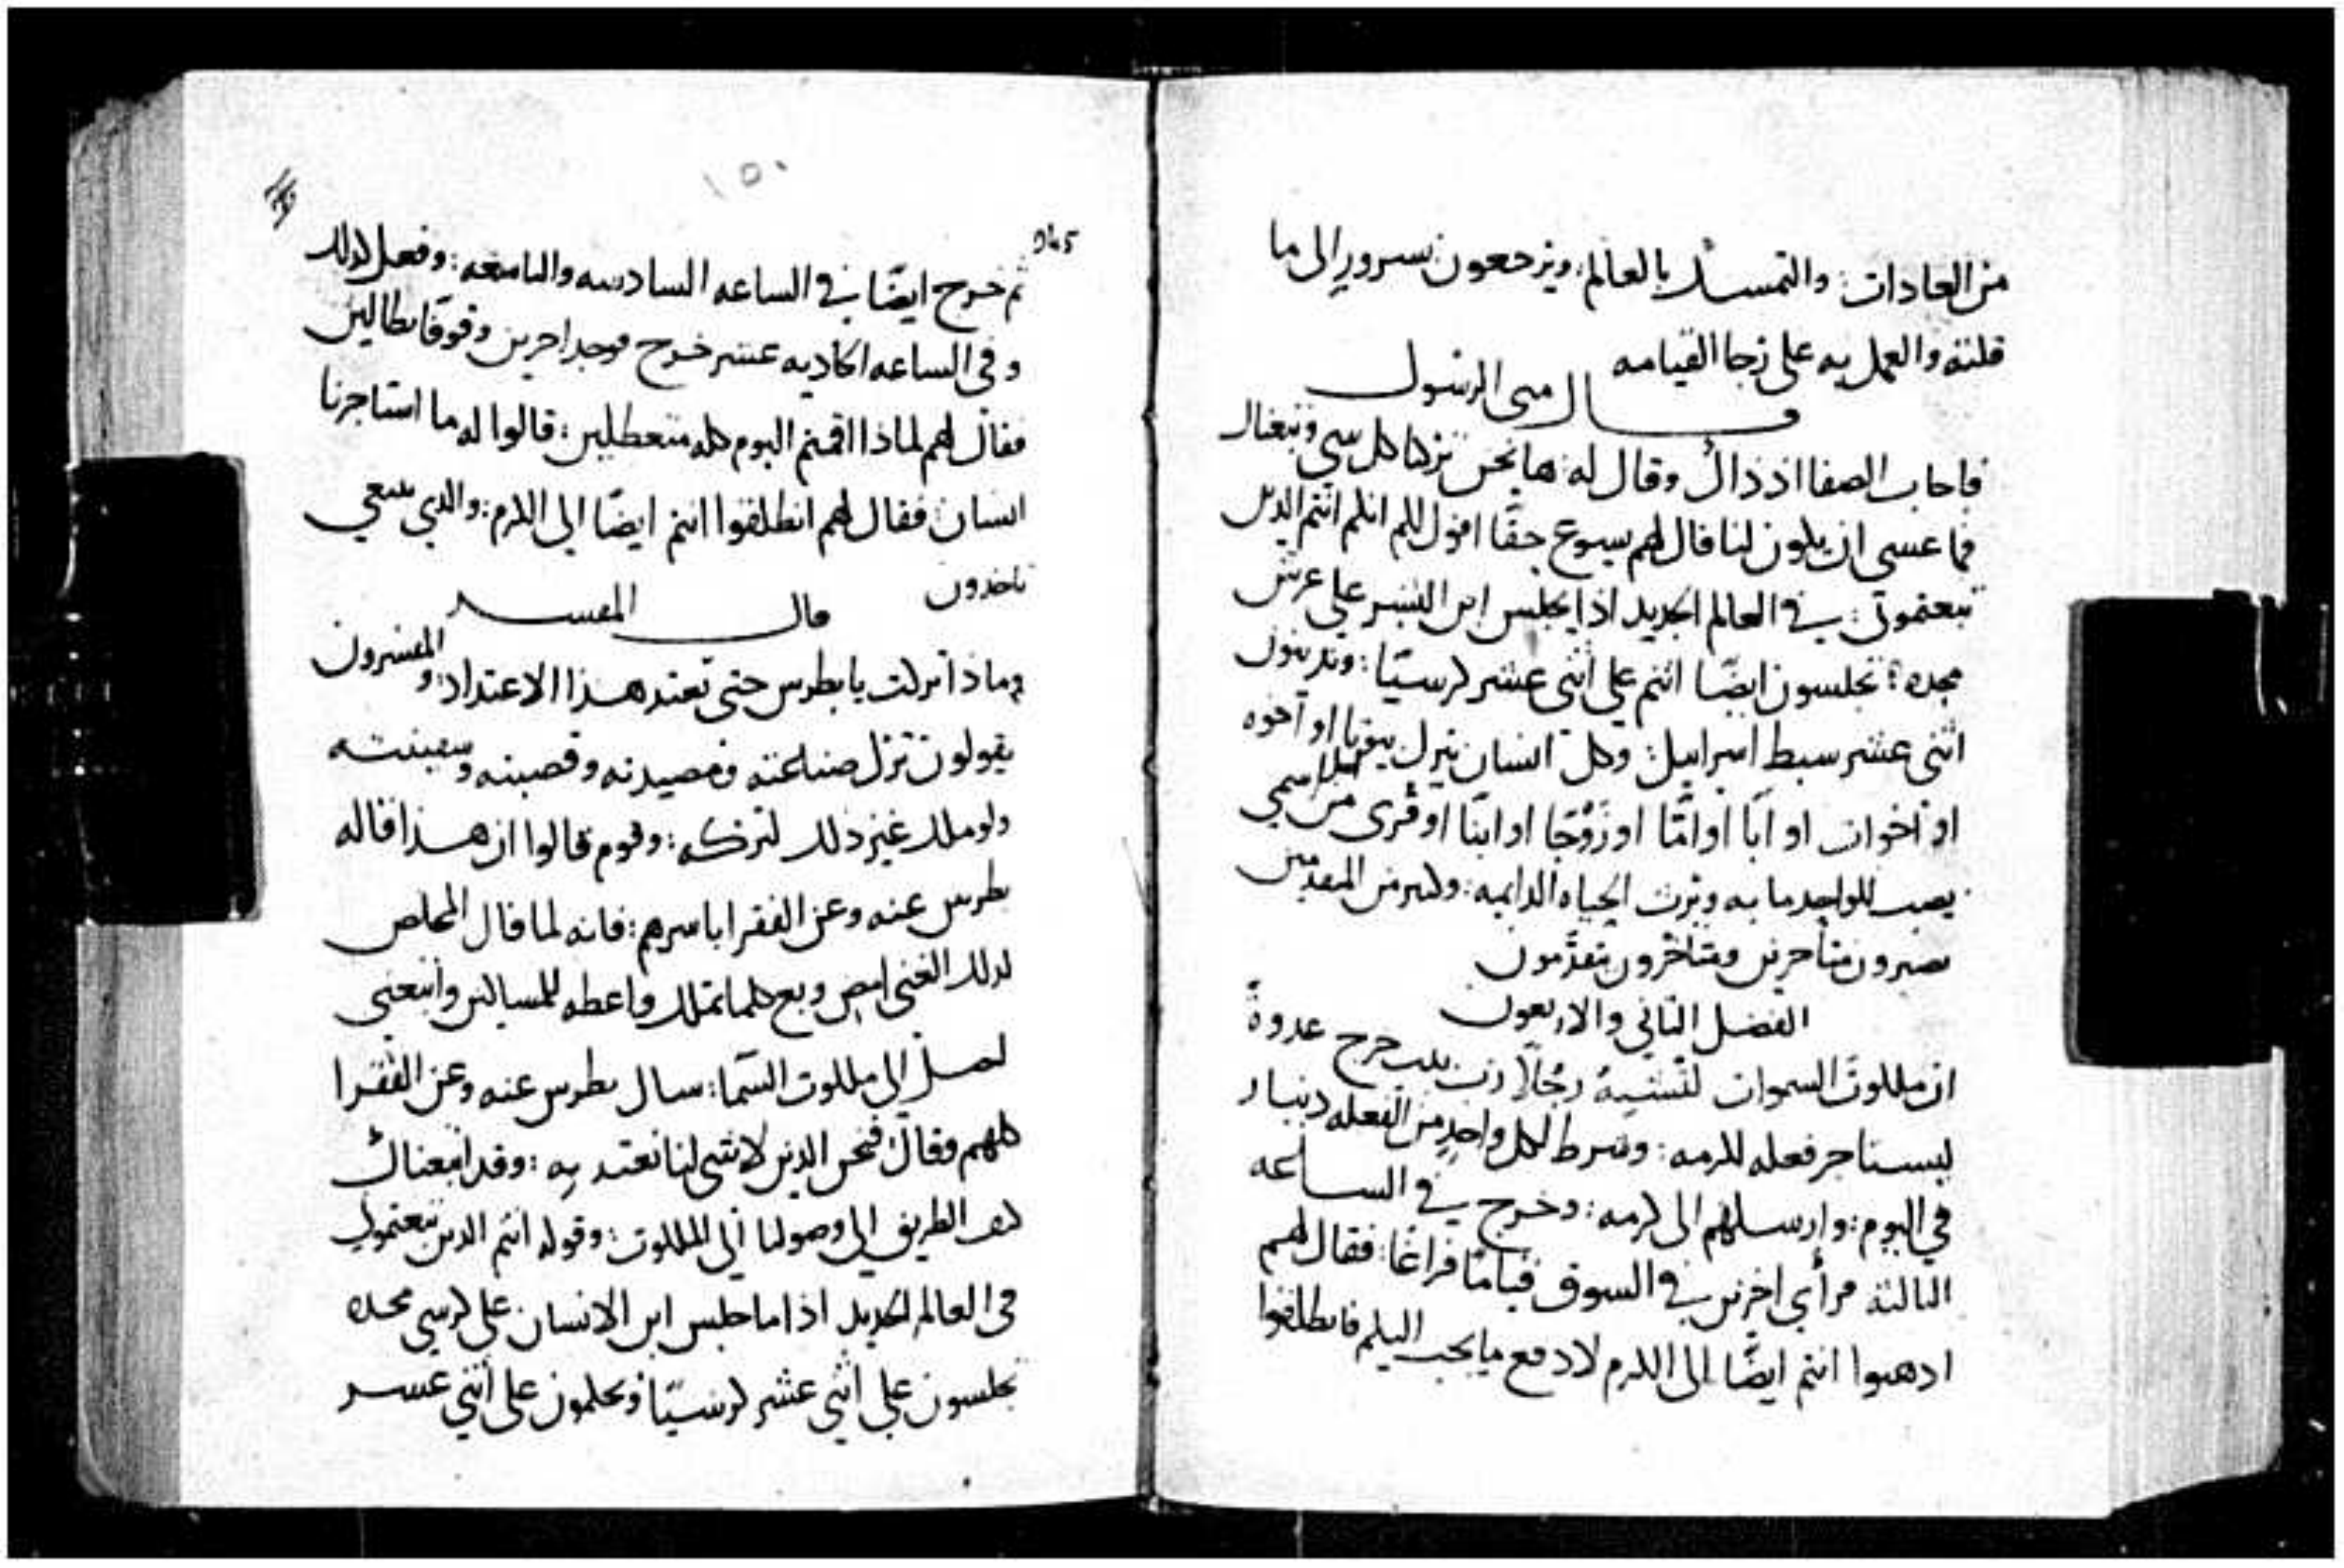 من العادات: والتمسك بالعالم: ويرجعون بسرور الى ما
قلته والعمل به على رجا القيامه
قال متى الرسول
فاجاب الصفا اذ ذاك وقال له: ها نحن تركنا كل شي وتبعناك
فما عسى ان يكون لنا قال لهم يسوع حقًا اقول لكم انكم انتم الذين
تبعتموني: في العالم الجديد اذا يجلس ابن البشر على عرش
مجده: تجلسون ايضًا انتم على اثني عشر كرسيًا: وتدينون
اثني عشر سبط اسراييل: وكل انسان يترك بيوتا او اخوه
او اخوات او ابًا او امًا او زوجًا او ابنًا او قرى من اجل اسمي
يصيب للواحد مايه ويرث الحياه الدايمه: وكثير من المتقدمين
يصيرون متأخرين ومتأخرون متقدّمون
الفصل الثاني والاربعون
ان ملكوت السموات لتشبه رجلًا رب بيت خرج غدوةً
ليستاجر فعله لكرمه: وشرط لكل واحدٍ من الفعله دينار
في اليوم: وارسلهم الى كرمه: وخرج في الساعه
الثالثه فرأى اخرين في السوق قيامًا فراغًا: فقال لهم
ادهبوا انتم ايضًا الى الكرم لادفع ما يجب اليكم فانطلقوا
١٥٠
ثم خرج ايضًا في الساعه السادسه والتاسعه: وفعل كذلك
وفي الساعه الحاديه عشر خرج فوجد اخرين وقوفًا بطالين
فقال لهم لماذا اقمتم اليوم كله متعطلين: قالوا له ما استاجرنا
انسان فقال لهم انطلقوا انتم ايضًا الى الكرم: والذي ينبغي
تاخدون
قال المفسر
وماذا تركت يا بطرس حتى تعتد هذا الاعتداد: والمفسرون
يقولون ترك صناعته ومصيدته وقصبته وسفينته
ولو ملك غير ذلك لتركه: وقوم قالوا ان هذا قاله
بطرس عنه وعن الفقرا باسرهم: فانه لما قال المخلص
لذلك الغني امض وبع كلما تملك واعطه للمساكين واتبعني
لتصل الى ملكوت السّما: سال بطرس عنه وعن الفقرا
كلهم وقال فنحن الذين لا شي لنا نعتد به: وقد اتبعناك
كيف الطريق الى وصولنا الى الملكوت: وقوله انتم الذين تبعتموني
في العالم الجديد اذا ما جلس ابن الانسان على كرسي مجده
تجلسون على اثني عشر كرسيًا وتحكمون على اثني عشر